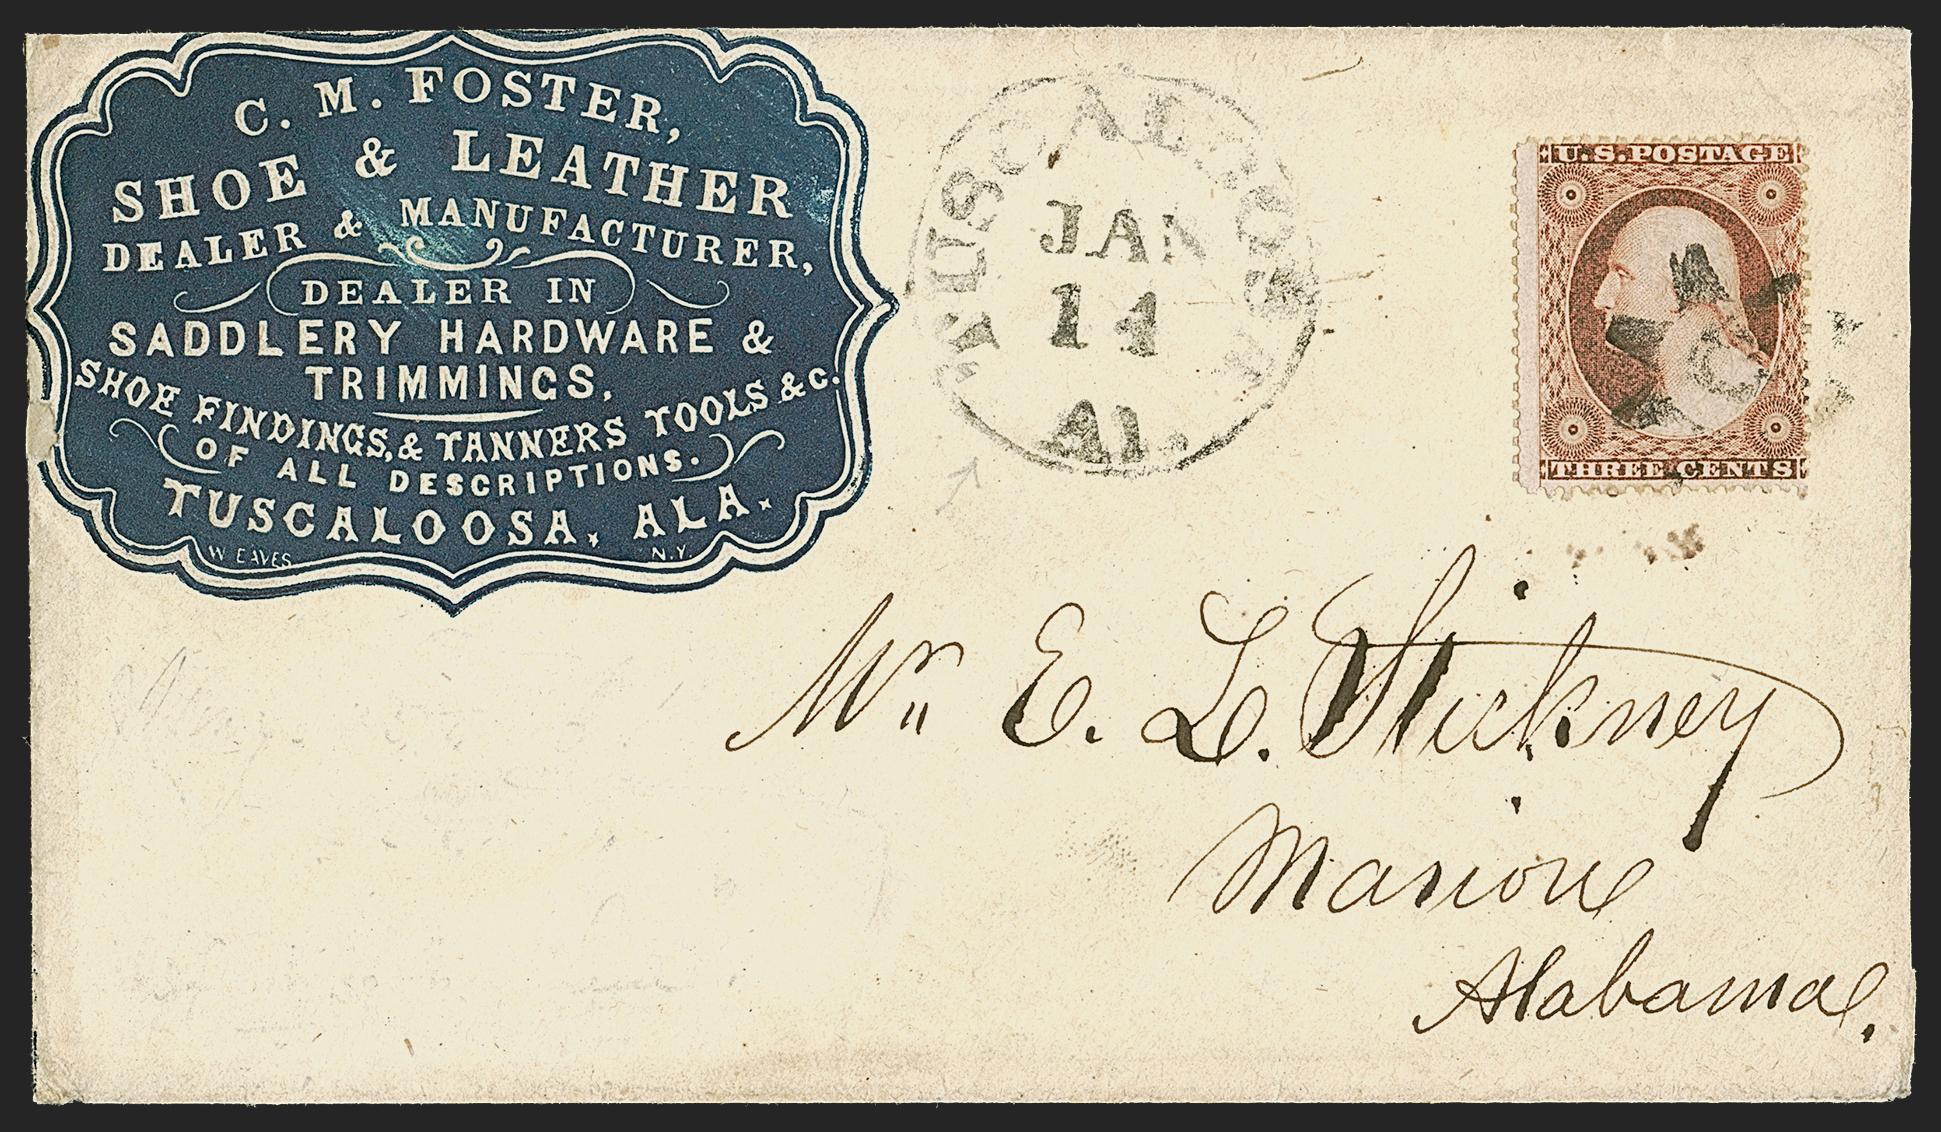 C. M. FOSTER,
SHOE & LEATHER
DEALER & MANUFACTURER,
DEALER IN
SADDLERY HARDWARE &
TRIMMINGS,
SHOE FINDINGS, & TANNERS TOOLS &C.
OF ALL DESCRIPTIONS.
TUSCALOOSA, ALA.
W EAVES N.Y.
TUSCALOOSA
JAN
14
Al.
U.S. POSTAGE
THREE CENTS
Mr E. L. Stickney
Marion
Alabama.